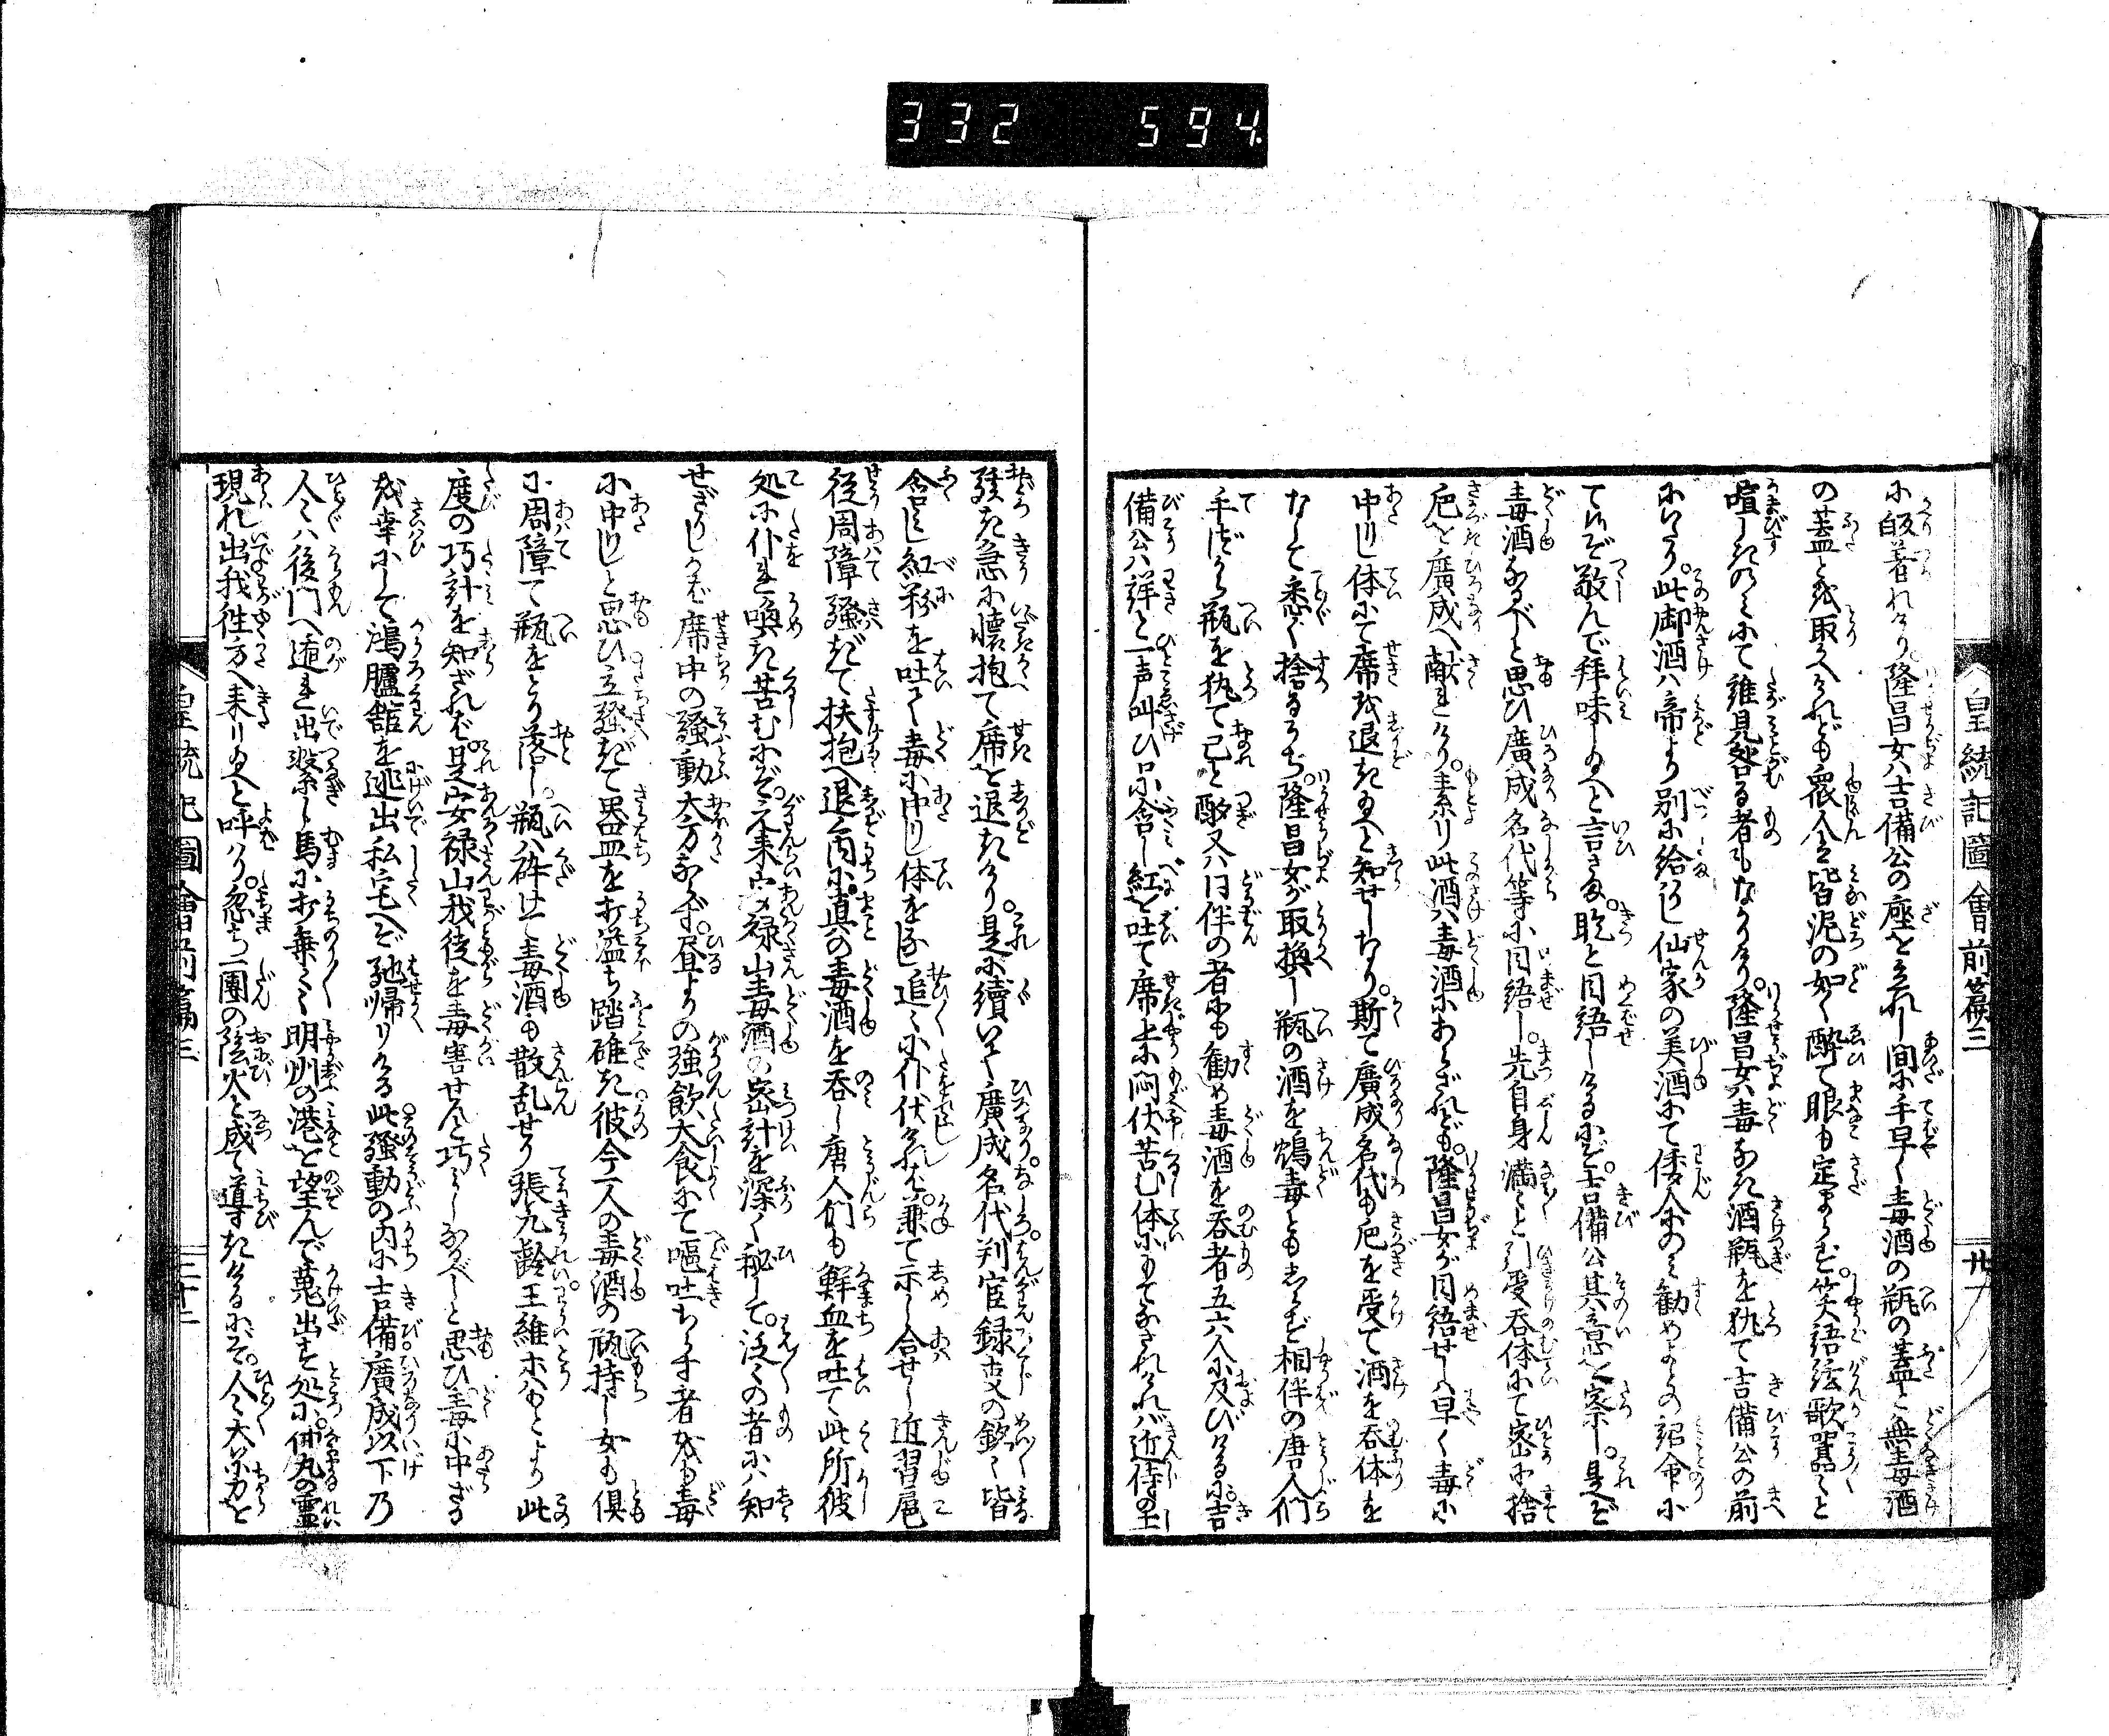 332 594
皇統記圖會前篇三
小皈着れけり。隆昌女ハ吉備公の座を立れし間に手早く毒酒の瓶の蓋と無毒酒
の蓋とを取かへけれども衆人皆泥の如く酔て眼も定まらず。笑語絃歌囂々と
喧しきのミにて誰見咎る者もなかりけり。隆昌女ハ毒なき酒瓶を執て吉備公の前
にいたり。此御酒ハ帝より別に給りし仙家の美酒にて倭人にのミ勧めよとの詔命に
て候ぞ敬んで拝味し給へと言さま。屹と目語しけるにぞ。吉備公其意を察し。是ぞ
毒酒なるべしと思ひ廣成名代等に目語し。先自身満々と引受呑体にて密に捨
巵を廣成へ献しけり。素り此酒ハ毒酒にあらざれども。隆昌女が目語せしハ早く毒に
中りし体にて席を退き給へと知せしなり。斯て廣成名代も巵を受て酒を呑体を
なして悉く捨るうち。隆昌女が取換し瓶の酒を鴆毒ともしらず相伴の唐人們
手づから瓶を執て己と酌又ハ同伴の者にも勧め毒酒を呑者五六人に及びける。吉
備公ハ詳と一声叫び口に含し紅を吐て席上に悶伏苦む体にもてなされけれバ近侍の
発き急に懐抱て席を退きけり。是に續いて廣成名代判官録事の銘々皆
含し紅粉を吐て毒に中りし体をなし追々に仆伏けれバ。兼て示し合せし近習扈
従周障騒ぎて扶抱へ退く内に。真の毒酒を呑し唐人們も鮮血を吐て此所彼
処に仆れ喚き苦むにぞ。元来安禄山毒酒の密計を深く秘して。泛々の者にハ知
せざりしかば席中の騒動大方ならず。昼よりの強飲大食にて嘔吐ちらす者をも毒
に中りしと思ひ立騒ぎて器皿を打溢ち踏碓き彼今一人の毒酒の瓶持し女も倶
に周障て瓶をとり落し。瓶ハ砕けて毒酒も散乱せり張九齢王維ホハもとより此
度の巧計を知ざれバ。是安禄山我徒を毒害せんと巧ミしなるべしと思ひ毒に中ざる
を幸にして鴻臚舘を逃出私宅へぞ馳帰りける此騒動の内に吉備廣成以下乃
人々ハ後門へ遁れ出繋し馬に打乗々々明州の港を望んで蒐出す処に。仲丸の靈
現れ出我徃方へ来り給へと呼ハり。忽ち一團の陰火と成て導きけるにぞ。人々大に力を
皇統記圖會前篇三